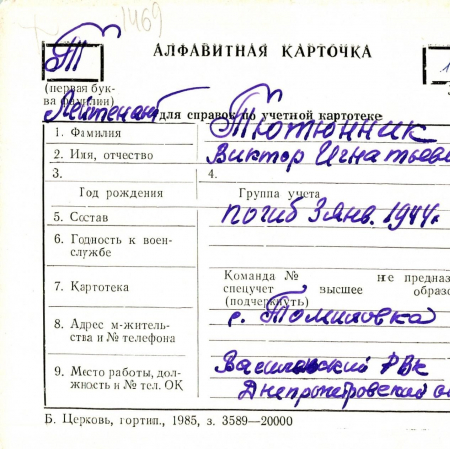 1469
АЛФАВИТНАЯ КАРТОЧКА
Т
(первая бук-
ва фамилии)
Лейтенант
для справок по учетной картотеке
1. Фамилия Тютюнник
2. Имя, отчество Виктор Игнатьеви
3. 4.
Год рождения Группа учета
5. Состав погиб 3 янв. 1944г.
6. Годность к воен-
службе
7. Картотека
Команда № не предназ
спецучет высшее образо
(подчеркнуть)
8. Адрес м-житель-
ства и № телефона
с. Томиловка
9. Место работы, дол-
жность и № тел. ОК
РВК
Днепропетровский
Б. Церковь, гортип., 1985, з. 3589—20000